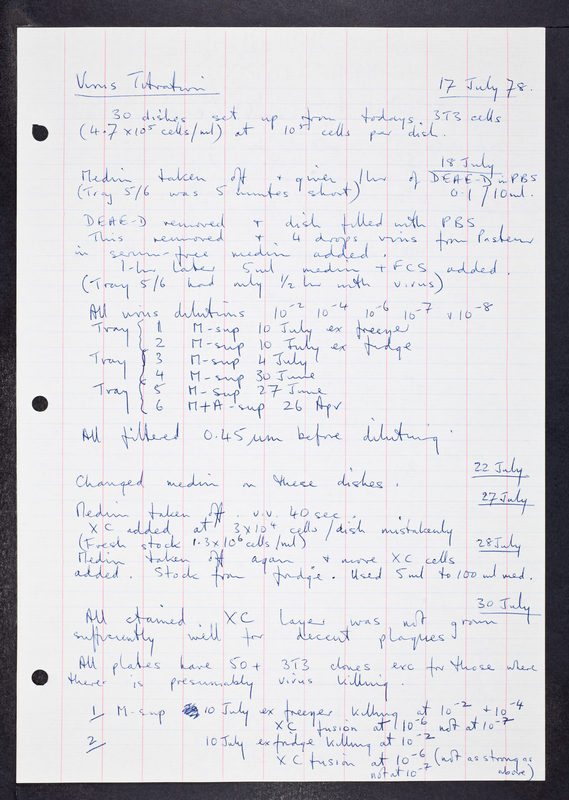 Virus Titration 17 July 78.
30 dishes set up from todays. 3T3 cells
(4.7 x 10⁵ cells/ml) at 10⁵ cells per dish.
18 July
Medium taken off + given 1hr of DEAE-D in PBS
(Tray 5/6 was 5 minutes short) 0.1 / 10ml.
DEAE-D removed + dish filled with PBS
This removed + 4 drops virus from Pasteur
in serum-free medium added.
1-hr later 5ml medium + FCS added.
(Tray 5/6 had only ½ hr with virus)
All virus dilutions 10⁻² 10⁻⁴ 10⁻⁶ 10⁻⁷ + 10⁻⁸
Tray { 1 M-sup 10 July ex freezer
2 M-sup 10 July ex fridge
Tray { 3 M-sup 4 July
4 M-sup 30 June
Tray { 5 M-sup 27 June
6 M+A-sup 26 Apr
All filtered 0.45 µm before diluting.
22 July
Changed medium on these dishes.
27 July
Medium taken off. u.v. 40 sec.
XC added at 3x10⁴ cells/dish mistakenly
(Fresh stock 1.3x10⁶ cells/ml) 28 July
Medium taken off again + more XC cells
added. Stock from fridge. Used 5ml to 100 ml med.
30 July
All stained. XC layer was not grown
sufficiently well for decent plaques
All plates have 50+ 3T3 clones exc for those where
there is presumably virus killing.
1 M-sup 10 July ex freezer killing at 10⁻² + 10⁻⁴
XC fusion at 10⁻⁶ not at 10⁻⁷
2 10 July ex fridge killing at 10⁻²
XC fusion at 10⁻⁶ (not as strong as
not at 10⁻⁷ above)